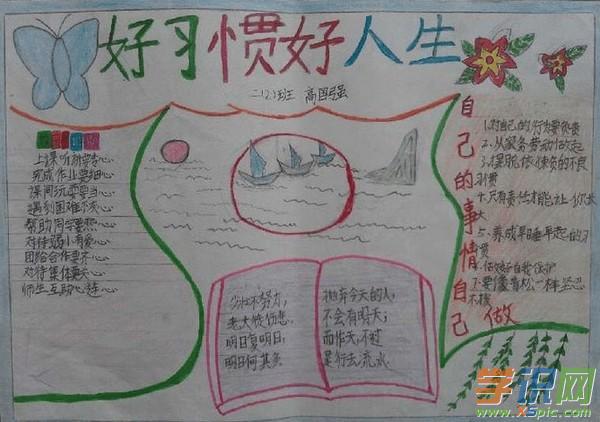 好习惯好人生
二(2)班 高国强
上课听讲要专心
完成作业要细心
课间玩耍要当心
遇到困难不灰心
帮助同学要热心
对待弱小有爱心
团结合作要齐心
对待集体要关心
师生互助心连心
少壮不努力,
老大徒伤悲,
明日复明日,
明日何其多
抛弃今天的人,
不会有明天;
而昨天,不过
是行去流水.
自己的事情自己做
1.对自己的行为要负责
2.从家务劳动做起
3.摆脱依赖的不良
习惯
4.只有责任才能让你长
大
5.养成早睡早起的习
惯
6.做好自我保护
7.要像青松一样坚忍
不拔
学识网
www.XSpic.com